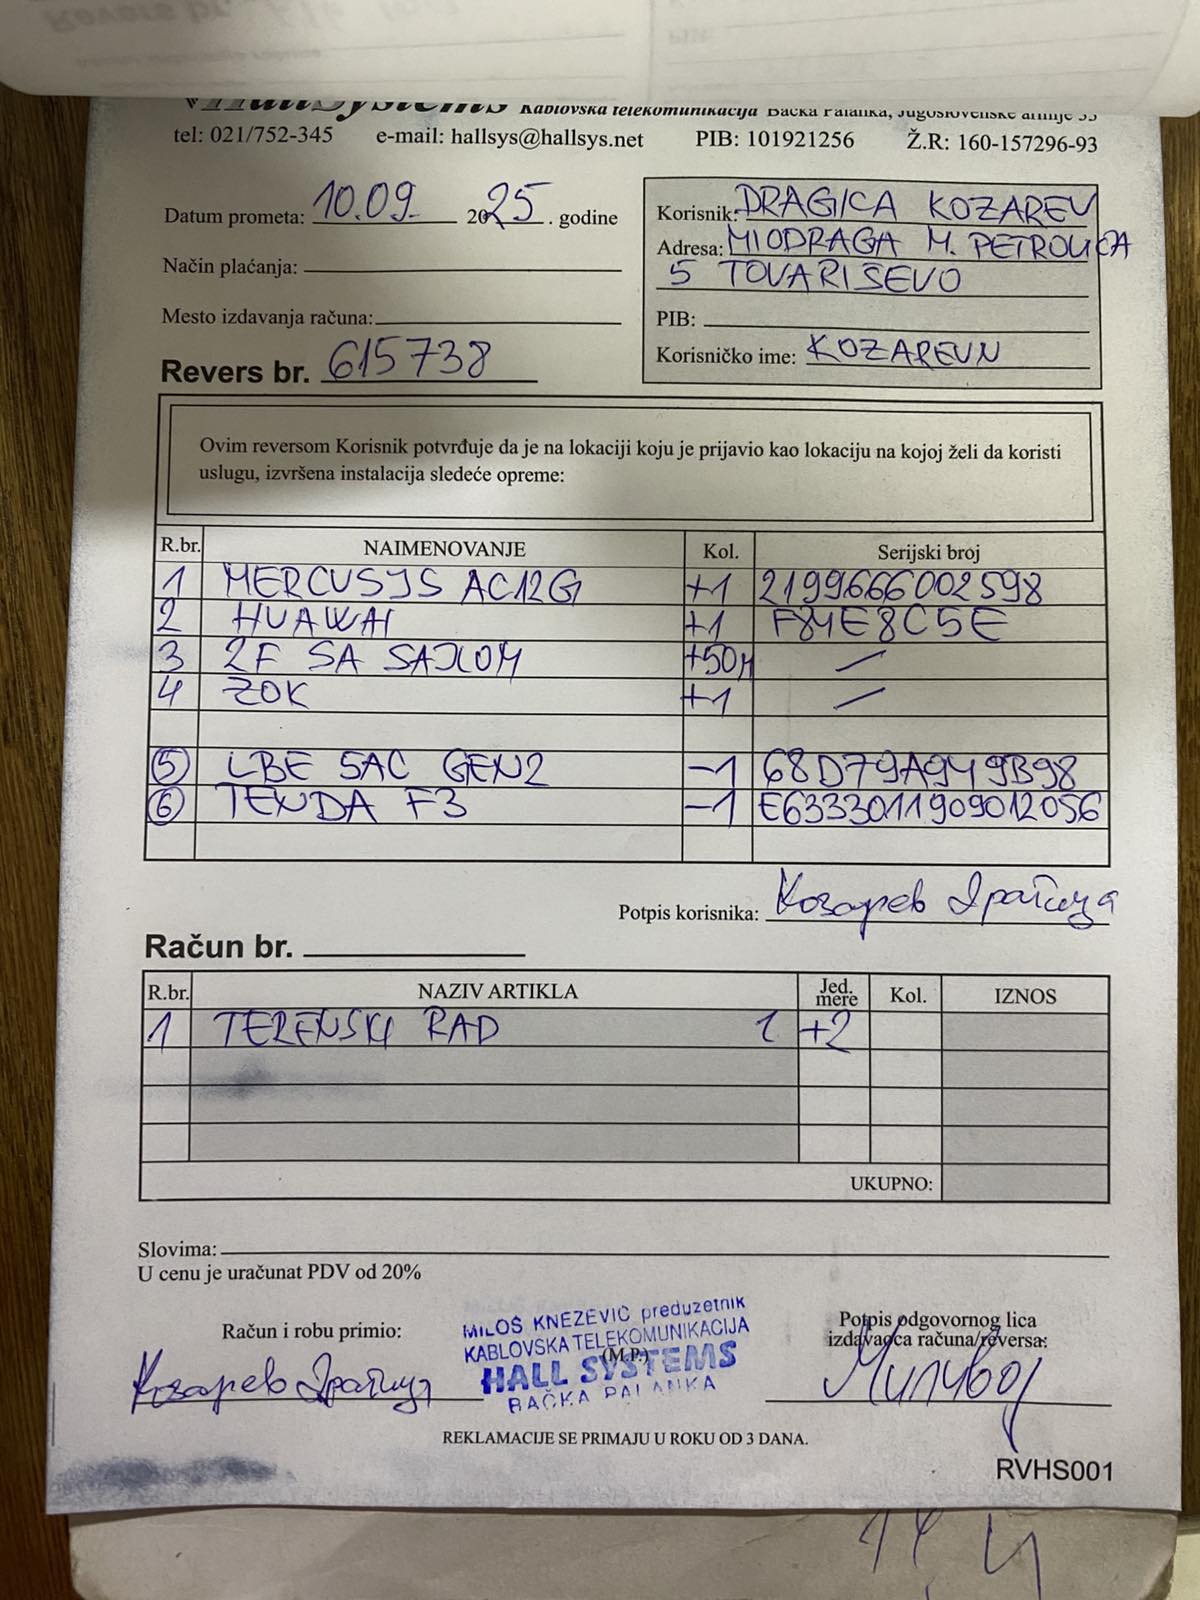 HallSystems Kablovska telekomunikacija Bačka Palanka, Jugoslovenske armije 33
tel: 021/752-345 e-mail: hallsys@hallsys.net PIB: 101921256 Ž.R: 160-157296-93
Datum prometa: 10.09. 2025. godine
Način plaćanja:
Mesto izdavanja računa:
Revers br. 615738
Korisnik: DRAGICA KOZAREV
Adresa: MIODRAGA M. PETROVIĆA
5 TOVARISEVO
PIB:
Korisničko ime: KOZAREVN
Ovim reversom Korisnik potvrđuje da je na lokaciji koju je prijavio kao lokaciju na kojoj želi da koristi
uslugu, izvršena instalacija sledeće opreme:
R.br. NAIMENOVANJE Kol. Serijski broj
1 MERCUSYS AC12G +1 2199666002598
2 HUAWAI +1 F84E8C5E
3 2F SA SAJLOM +50M /
4 ZOK +1 /
5 LBE 5AC GEN2 -1 68D79A949B98
6 TENDA F3 -1 E6333011909012056
Potpis korisnika: Козарев Драгица
Račun br.
R.br. NAZIV ARTIKLA Jed. mere Kol. IZNOS
1 TERENSKI RAD 1 +2
UKUPNO:
Slovima:
U cenu je uračunat PDV od 20%
Račun i robu primio:
Козарев Драгица
MILOŠ KNEŽEVIĆ preduzetnik
KABLOVSKA TELEKOMUNIKACIJA
(M.P.)
HALL SYSTEMS
BAČKA PALANKA
Potpis odgovornog lica
izdavaoca računa/reversa:
REKLAMACIJE SE PRIMAJU U ROKU OD 3 DANA.
RVHS001